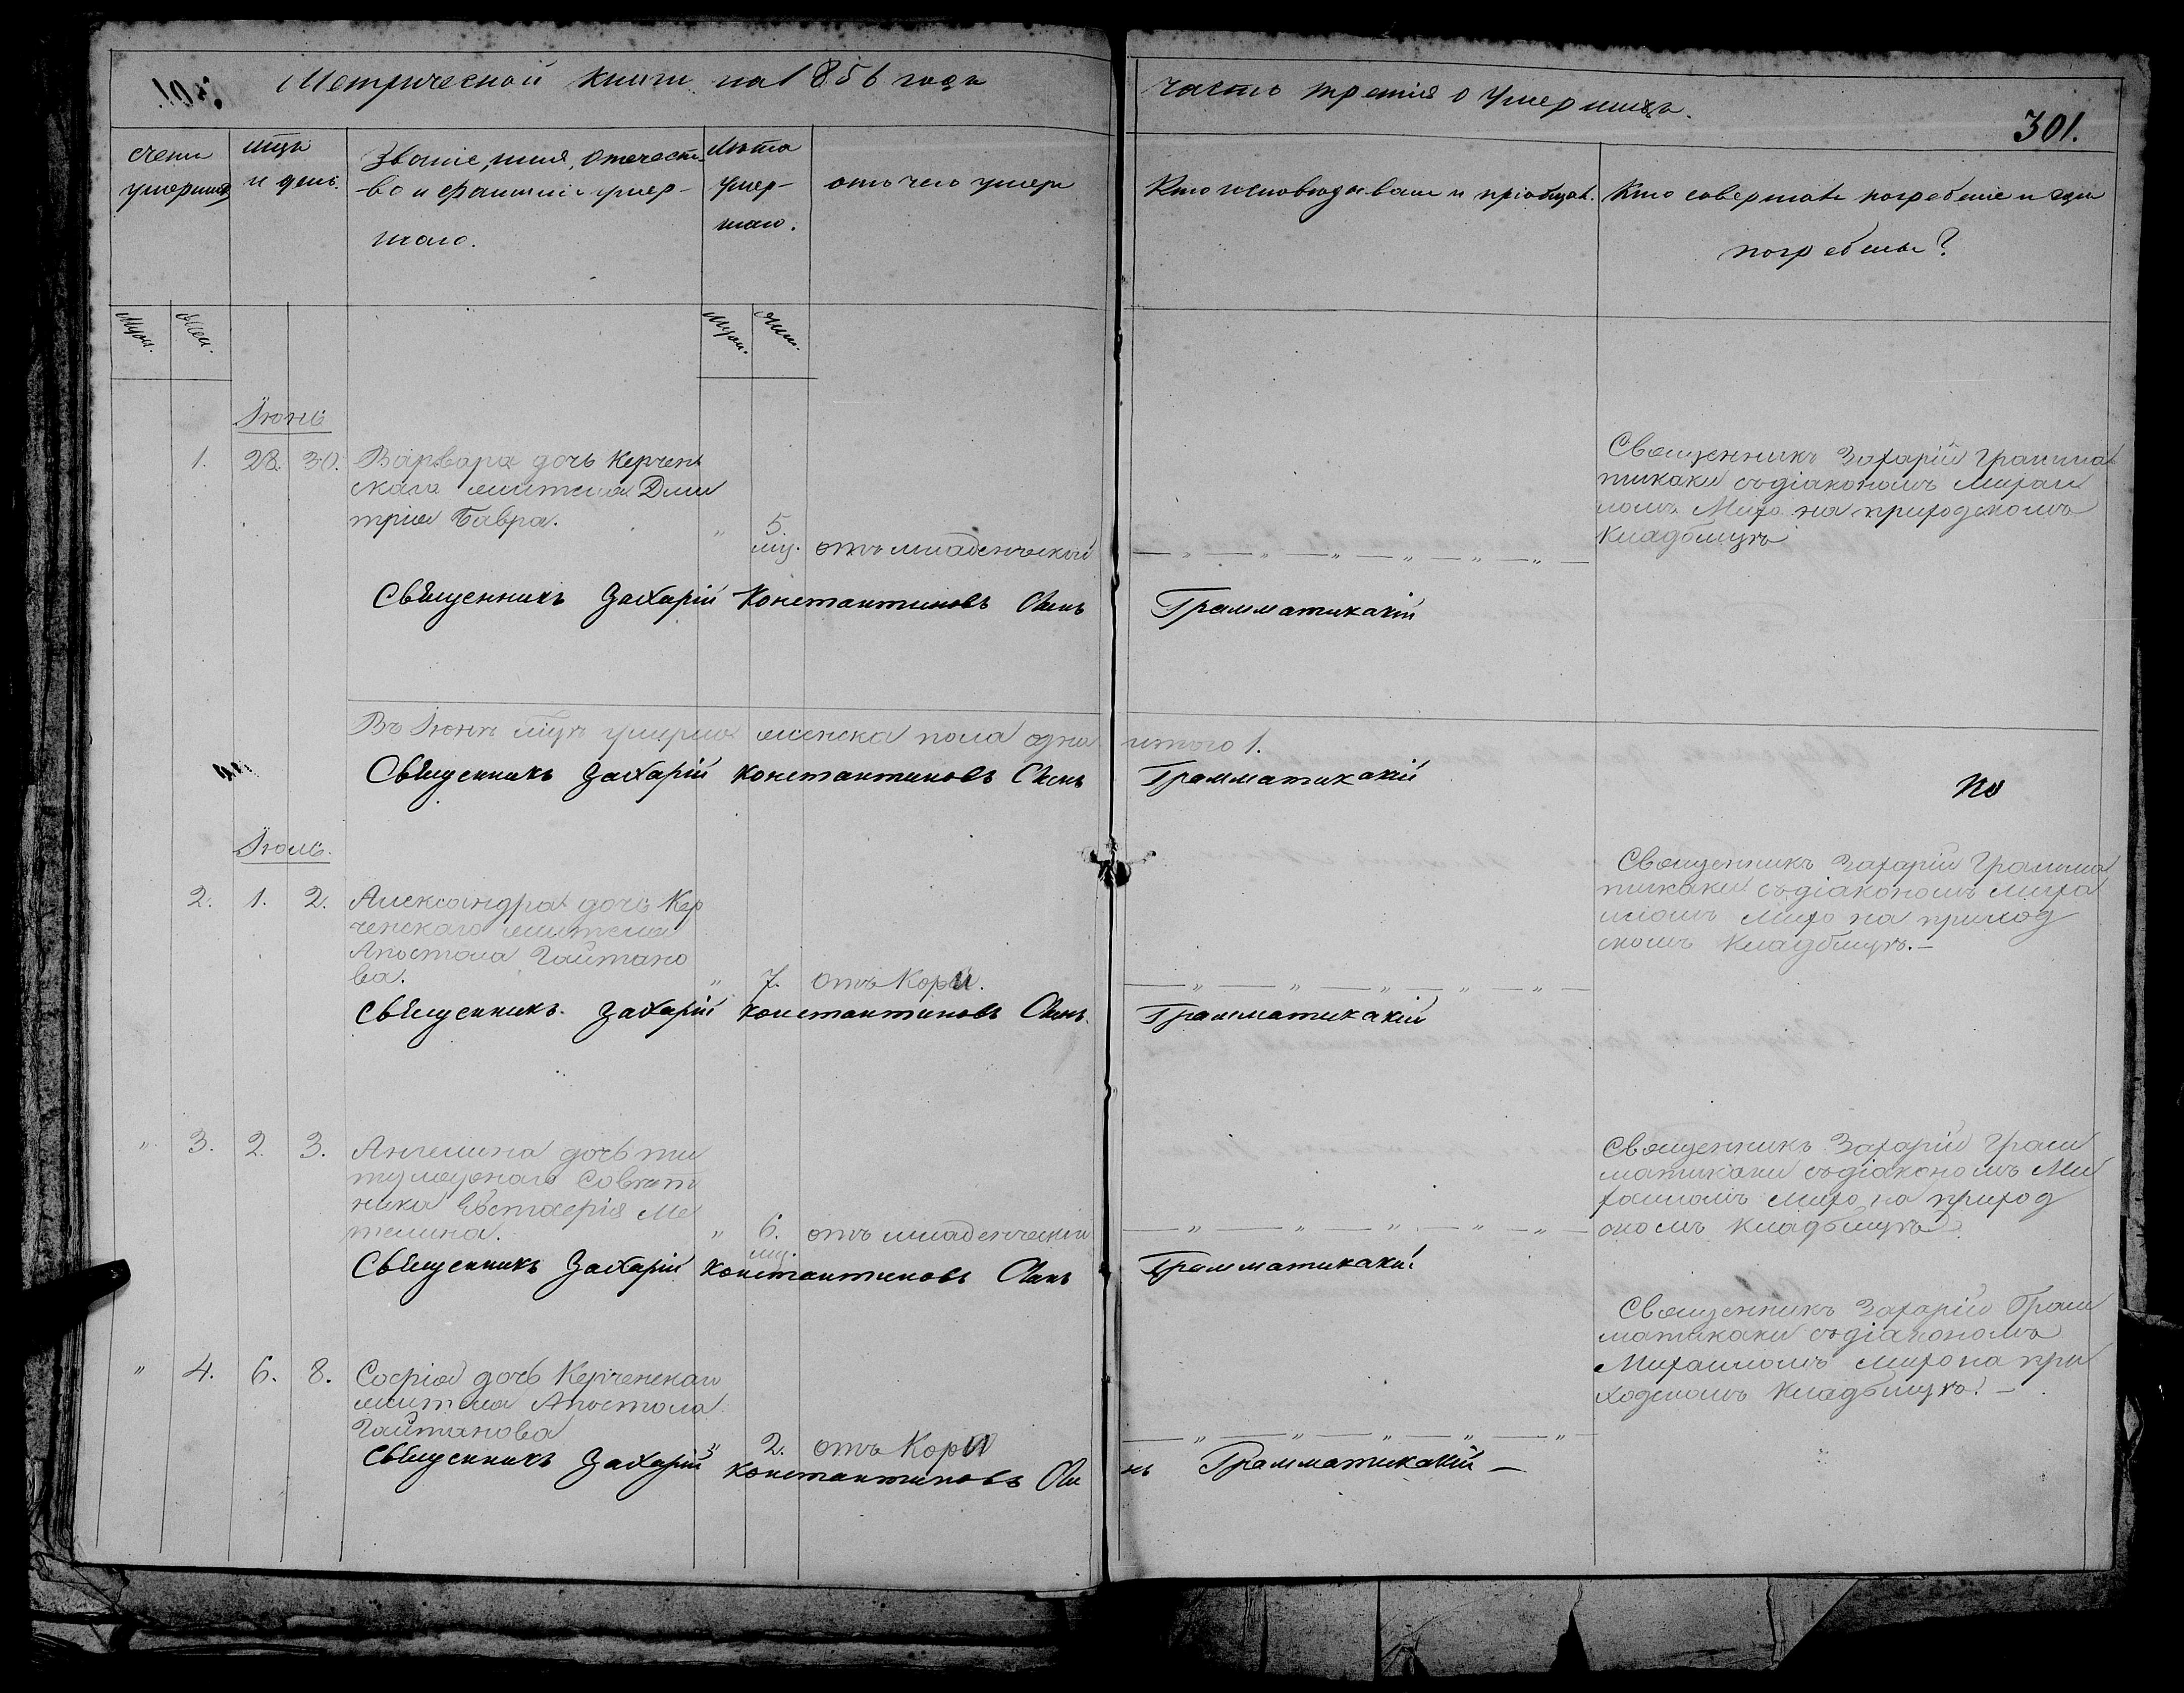 Метрической книги на 1856 годъ
часть третія о умершихъ.
301.
счетъ
умершихъ
мцъ
и день.
Званіе, имя, отечест-
во и фамилія умер-
шаго.
Лѣта
умер-
шаго.
отъ чего умеръ
Кто исповѣдывалъ и пріобщалъ.
Кто совершалъ погребеніе и гдѣ
погребены?
Муж.
Жен.
Муж.
Жен.
Іюнь
1. 28. 30. Варвара дочь Керчен
скаго жителя Дми
трія Бавра.
" 5.
мц. отъ младенческой
Священникъ Захарій Граммат
тикаки съ діакономъ Михаи
ломъ Михо на приходскомъ
Кладбищѣ
Священникъ Захарій Константиновъ Сынъ Грамматикакій
Въ Іюнѣ мцѣ умерло женска пола одна итого 1.
Священникъ Захарій Константиновъ Сынъ Грамматикакій
по
Іюль.
2. 1. 2. Александра дочь Кер
ченскаго жителя
Апостола Гайтано
ва.
" 7. отъ Кори.
Священникъ Захарій Грамма
тикаки съ діакономъ Миха
иломъ Михо на приход
скомъ Кладбищѣ. —
Священникъ. Захарій Константиновъ Сынъ. Грамматикакій
" 3. 2. 3. Ангелина дочь ти
тулярнаго Совѣт
ника Евстафія Ме
телина.
" 6.
мц.
отъ младенческой
Священникъ Захарій Грам
матикаки съ діакономъ Ми
хаиломъ Михо на приход
скомъ Кладбищѣ
Священникъ Захарій Константиновъ Сынъ Грамматикакій
" 4. 6. 8. Софія дочь Керченскаго
жителя Апостола
Гайтанова
" 2. отъ Кори
Священникъ Захарій Грам
матикаки съ діакономъ
Михаиломъ Михо на при
ходскомъ Кладбищѣ. —
Священникъ Захарій Константиновъ Сы
нъ Грамматикакій —